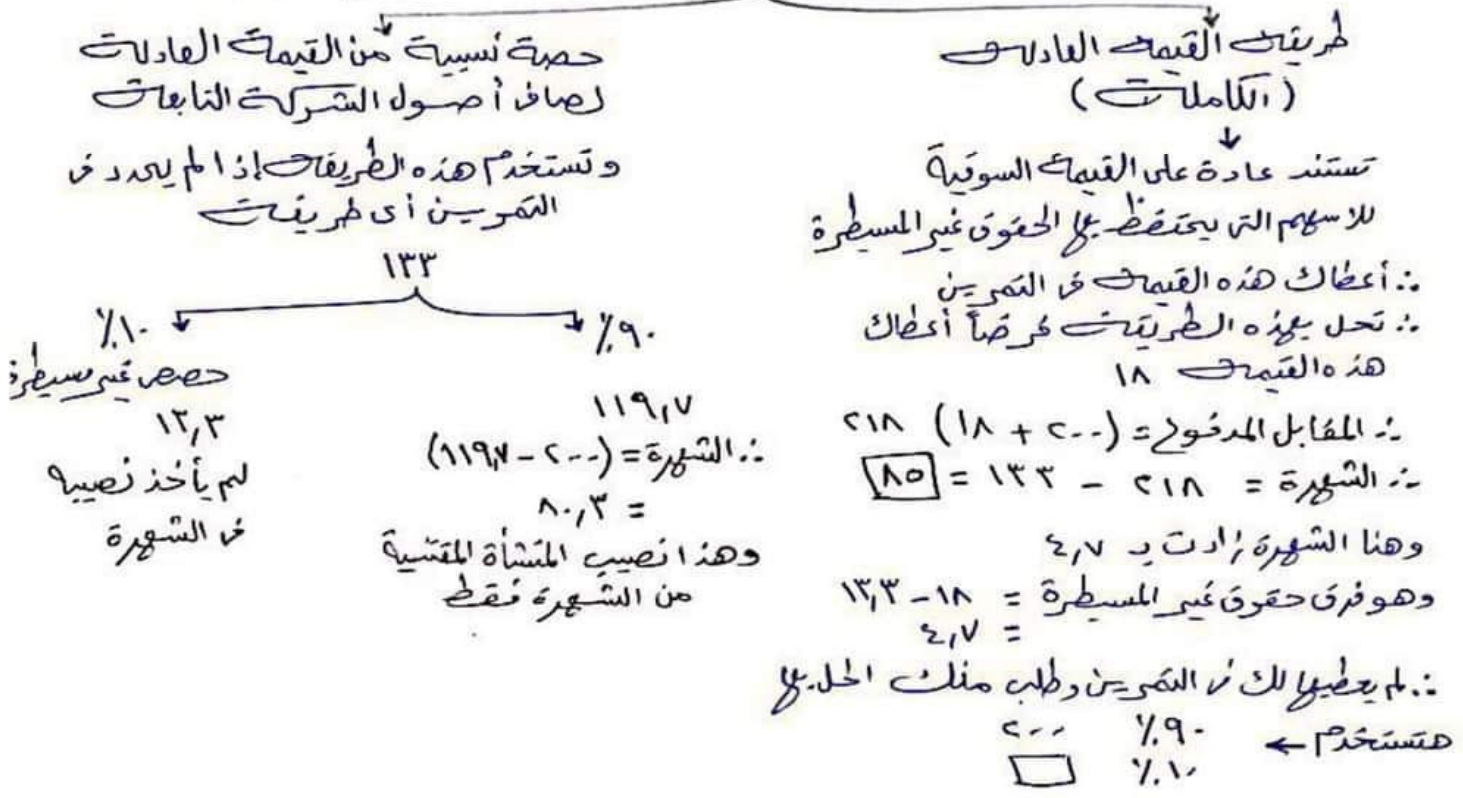 طريقة القيمة العادلة
(الكاملة)
تستند عادة على القيمة السوقية
للاسهم التى يحتفظ بها الحقوق غير المسيطرة
∴ أعطاك هذه القيمة فى التمرين
∴ تحل بهذه الطريقة فرضاً أعطاك
هذه القيمة ١٨
∴ المقابل المدفوع = (٢٠٠ + ١٨) ٢١٨
∴ الشهرة = ٢١٨ - ١٣٣ = ٨٥
وهنا الشهرة زادت بـ ٤,٧
وهو فرق حقوق غير المسيطرة = ١٨ - ١٣,٣
= ٤,٧
∴ لم يعطيها لك فى التمرين وطلب منك الحل بها
هتستخدم ← ٩٠٪ ٢٠٠
١٠٪
حصة نسبية من القيمة العادلة
لصافى أصول الشركة التابعة
وتستخدم هذه الطريقة إذا لم يحدد فى
التمرين أى طريقة
١٣٣
٩٠٪
١١٩,٧
∴ الشهرة = (٢٠٠ - ١١٩,٧)
= ٨٠,٣
وهذا نصيب المنشأة المقتنية
من الشهرة فقط
١٠٪
حصص غير مسيطرة
١٣,٣
لم يأخذ نصيبه
فى الشهرة